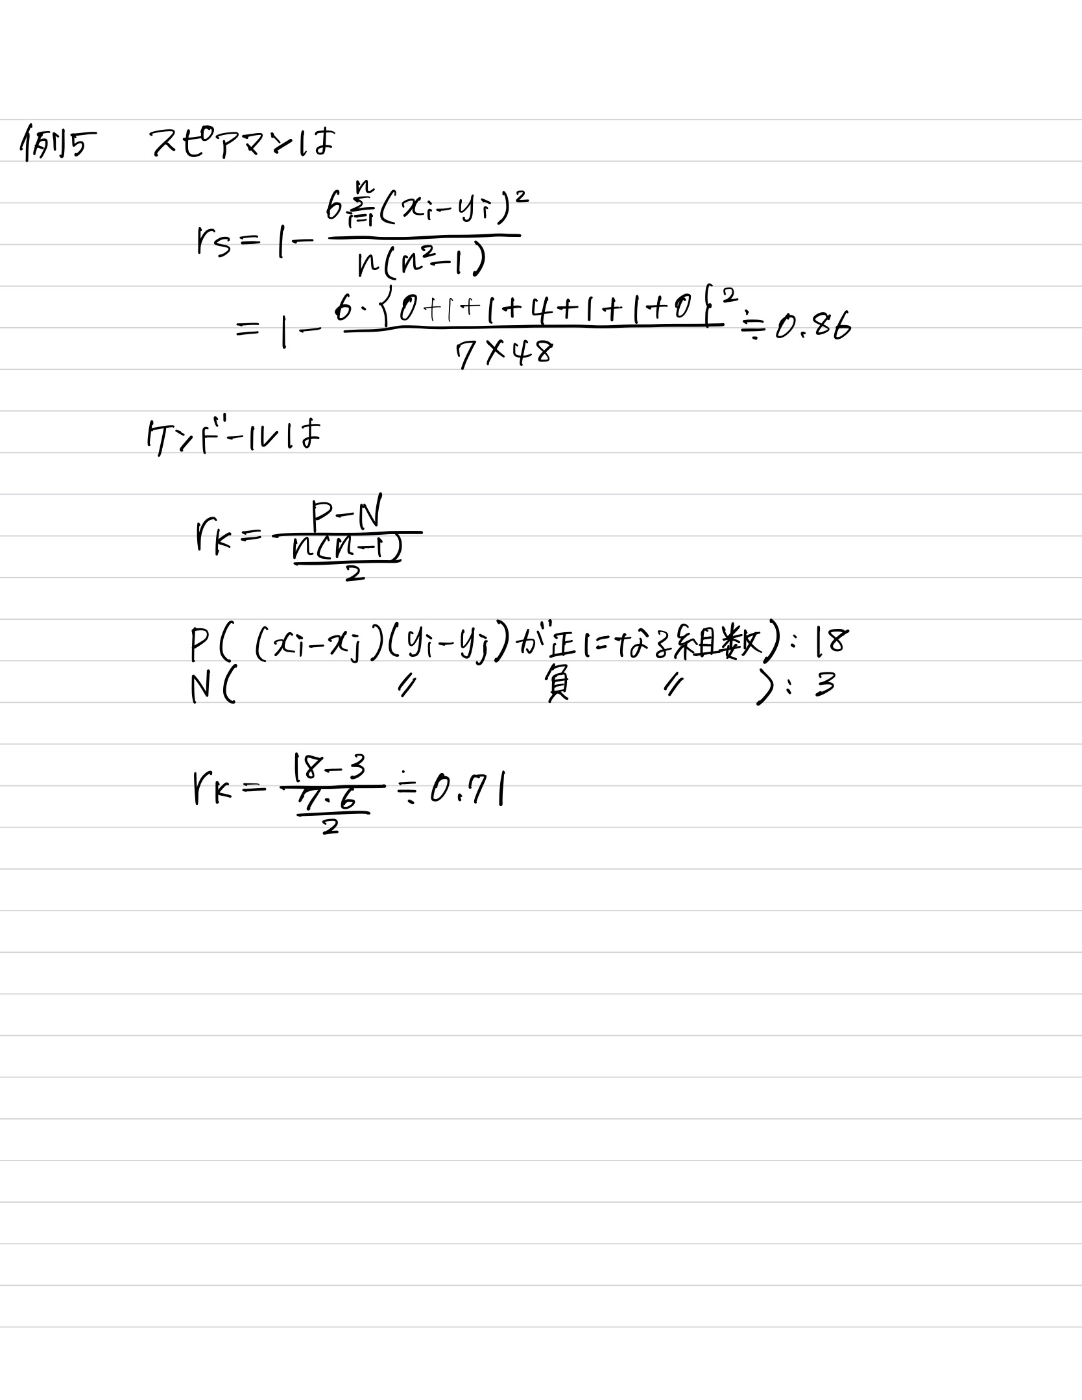 例5 スピアマンは
rs = 1 - 6 Σ_{i=1}^{n} (xi - yi)² / n(n² - 1)
= 1 - 6・{0+1+1+4+1+1+0}² / 7×48 ≒ 0.86
ケンドールは
rK = (P-N) / (n(n-1)/2)
P( (xi-xj)(yi-yj)が正になる組数): 18
N( 〃 負 〃 ): 3
rK = (18-3) / (7・6/2) ≒ 0.71